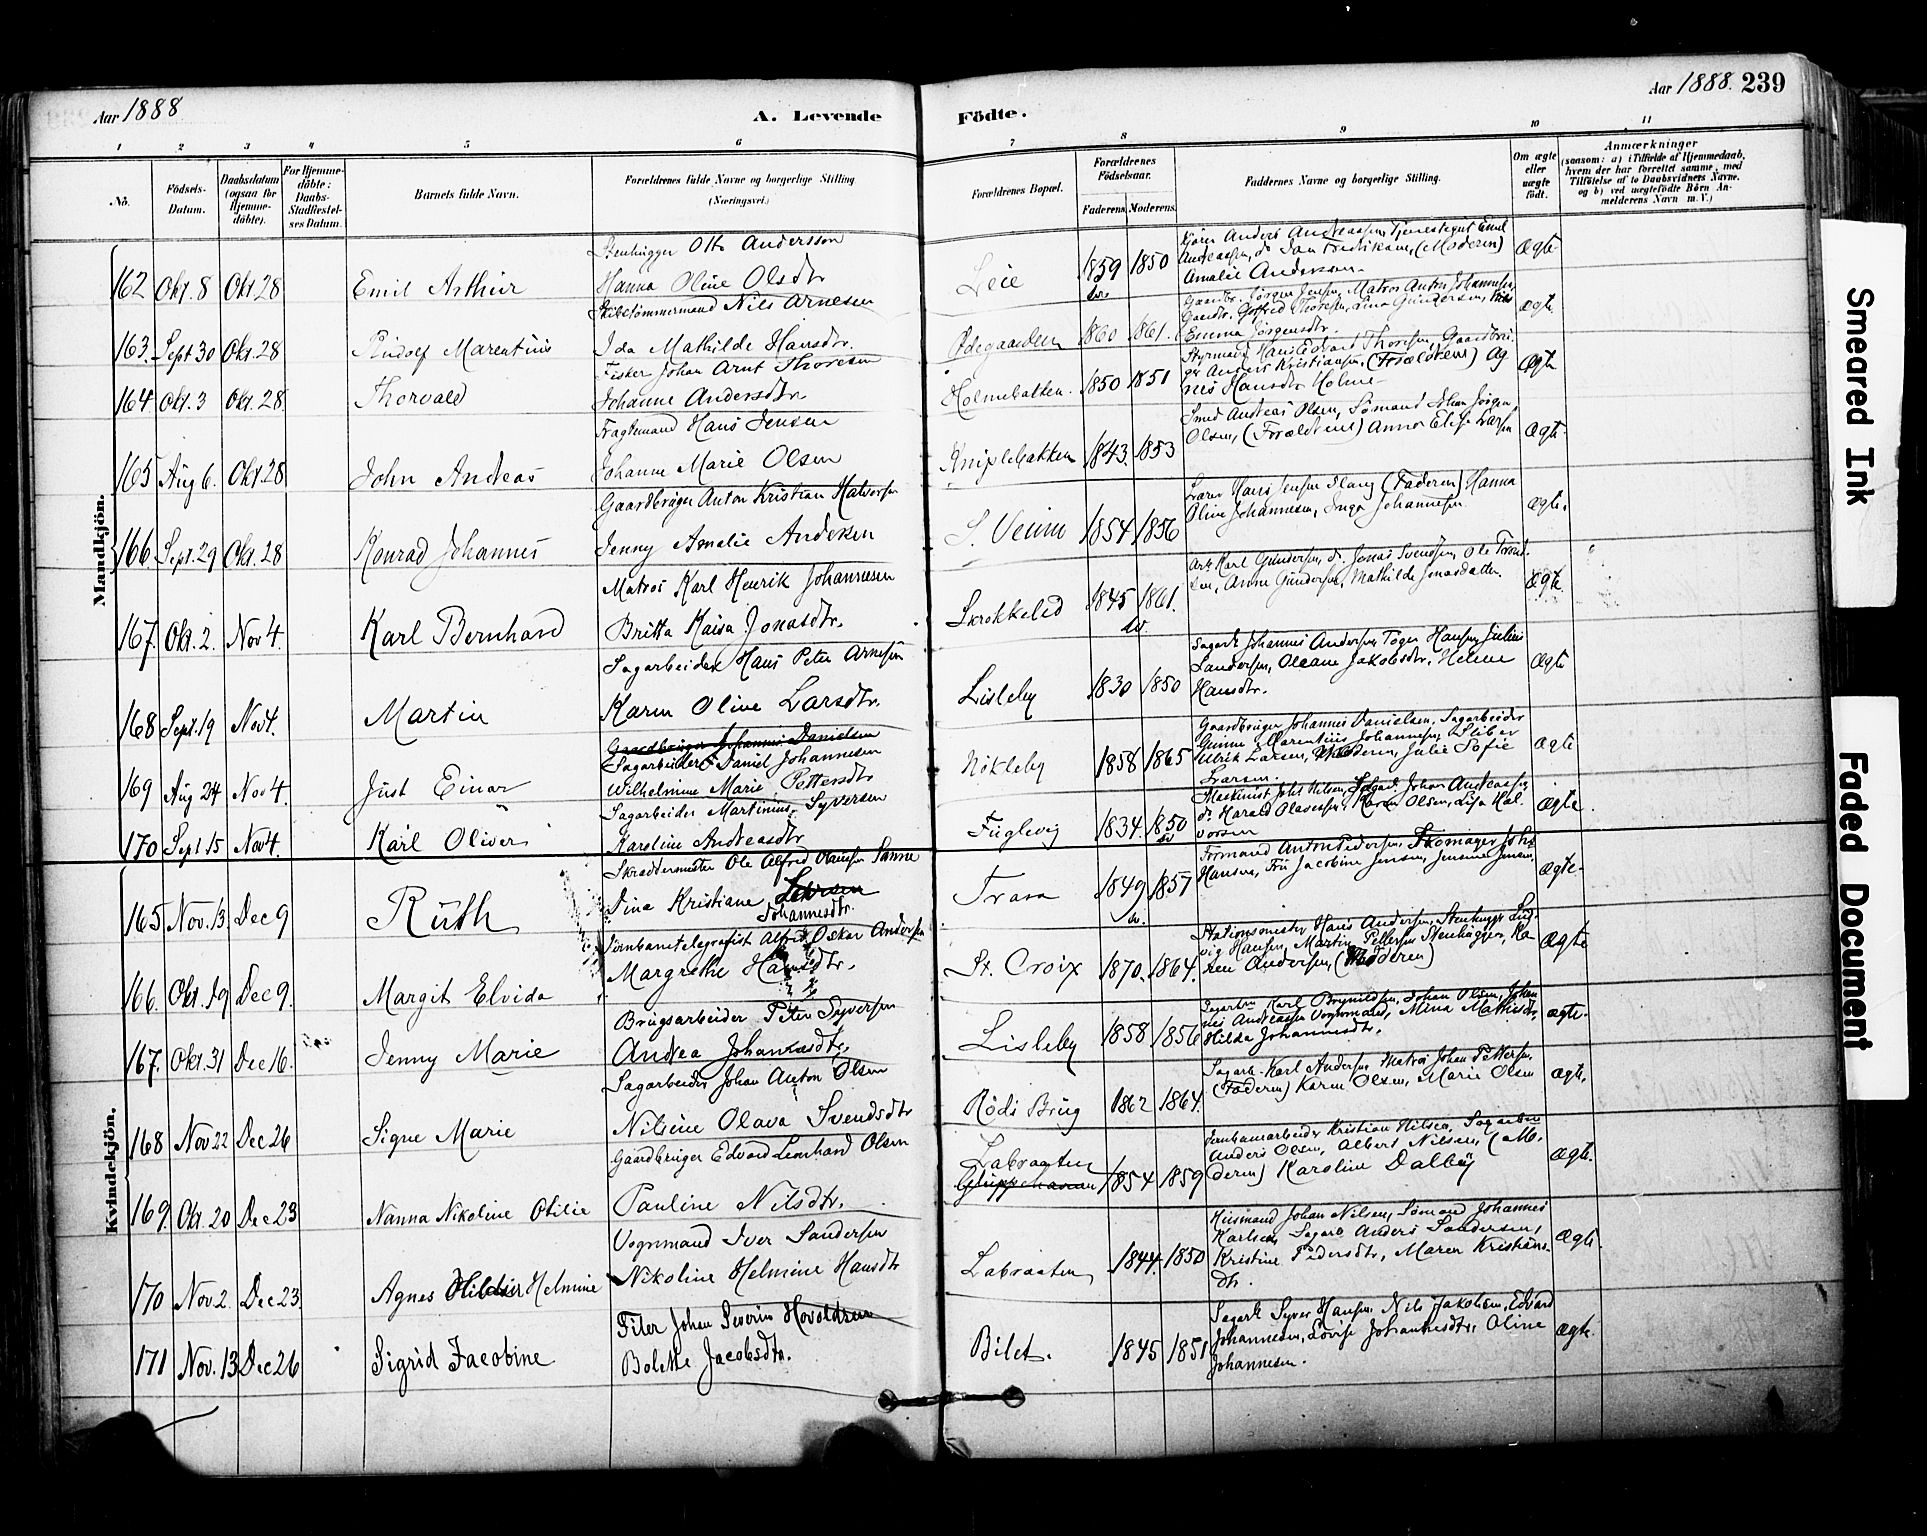 Aar 1888
A. Levende
Födte.
Aar 1888. 239
1 2 3 4 5 6 7 8 9 10 11
No. Födsels-Datum. Daabsdatum (ogsaa for Hjemme-döbte). For Hjemme-döbte: Daabs-Stadfæstel-ses Datum. Barnets fulde Navn. Forældrenes fulde Navne og borgerlige Stilling (Næringsvei.) Forældrenes Bopæl. Forældrenes Födselsaar. Faderens. Moderens. Faddernes Navne og borgerlige Stilling. Om ægte eller uægte födt. Anmærkninger (saasom: a) i Tilfælde af Hjemmedaab, hvem der har forrettet samme, med Tilföielse af to Daabsvidners Navne, og b) ved uægtefödte Börn An-melderens Navn m. V.)
Mandkjön.
Stenhugger Otto Andersson
162 Okt. 8 Okt 28 Emil Arthur Hanna Oline Olsdtr Leie 1859 1850 Ægte
Amalie Andersen
Skibstömmermand Nils Arnesen
163. Sept 30 Okt. 28 Rudolf Marentius Ida Mathilde Hansdtr. Ödegaarden 1860 1861. Ægte.
Emma Jörgensdtr.
Fisker Johan Arnt Thoresen
164 Okt. 3 Okt. 28. Thorvald Johanne Andersdtr Holmebakken. 1850 1851 Ægte
Styrmand Hans Edvard Thoresen,
Anders Kristiansen, (Forældrene) Ag
nes Hansdtr Holme
Fragtemand Hans Jensen
165 Aug 6. Okt. 28 John Andreas Johanne Marie Olsen Kniplebakken 1843. 1853 Ægte
Smed Andreas Olsen, Sömand Johan Jörgen
Olsen, (Forældrene) Anna Elise Larsen
Gaardbruger Anton Kristian Halvorsen
166 Sept. 29 Okt. 28 Konrad Johannes Jenny Amalie Andersen S. Veum 1854 1856 Ægte.
Oline Johannesen, Inga Johannesen
Matros Karl Henrik Johannesen
167. Okt. 2. Nov 4. Karl Bernhard Britta Kaisa Jonasdtr. Skrokkelid 1845 1861. Ægte
Arb. Karl Gundersen, do. Jonas Svendsen, Ole
Anne Gundersen, Mathilde Jonasdatter.
Sagarbeider Hans Peter Arnesen
168 Sept. 19 Nov 4. Martin Karen Oline Larsdtr. Lisleby 1830 1850 Ægte
Sagarb. Johannes Andersen,
Oleane Jakobsdtr. Helene
Hansdtr.
Gaardbruger Johannes Danielsen
Sagarbeider Daniel Johannesen
169 Aug 24 Nov 4. Just Einar Wilhelmine Marie Pettersdtr Nökleby 1858 1865 Ægte
Gaardbruger Johannes Danielsen, Sagarbeider
Marentius Johannesen,
Ulrik Larsen, Moderen, Julie Sofie
Larsen.
Sagarbeider Martinius Syversen
170 Sept 15 Nov 4. Karl Oliver Karoline Andreasdtr Fuglevig 1834. 1850 Ægte.
Johan Andreassen,
do. Harald Olavesen, Karen Olsen, Lisa Hal
vorsen
Kvindekjön.
Skræddermester Ole Alfred Sanne
165 Nov. 13. Dec 9 Ruth Dina Kristiane Larsen Trara 1849 1857 Ægte
Johannesdtr.
Formand Anton Pedersen, Skomager John
Hansen, Frü Jacobine Jensen, Jensine Jensen
Jernbanetelegrafist Alfred Oskar Andersen
166. Okt. 19 Dec 9. Margit Elvida Margrethe Hansdtr. St. Croix 1870. 1864. Ægte
Stationsmester Hans Andersen, Stenhugger Lud
vig Hansen, Martin Pettersen Stenhugger, Ka
ren Andersen, (Moderen)
Brugsarbeider Peter Syversen
167. Okt. 31 Dec 16. Jenny Marie Andrea Johannesdtr. Lisleby 1858 1856 Ægte.
Sagarb. Karl Brynildsen, Johan Olsen, Johan
nes Andreassen Vognmand, Mina Mathisdtr,
Hilda Johannesdtr.
Sagarbeider Johan Anton Olsen
168 Nov 22 Dec 26 Signe Marie Nilsine Olava Svendsdtr Röds Brug 1862 1864. Ægte.
Sagarb. Karl Andersen, Matros Johan Pettersen,
(Faderen) Karen Olsen, Marie Olsen
Gaardbruger Edvard Leonhard Olsen
169. Okt. 20 Dec 23 Nanna Nikoline Otilie Pauline Nilsdtr. Labraaten 1854 1859 Ægte.
Jernbanearbeider Kristian Nilsen, Sagarbeid
Anders Olsen, Albert Nilsen, (Mo
deren) Karoline Dalby
Vognmand Iver Sandersen
170 Nov. 2. Dec 23. Agnes Helmine Nikoline Helmine Hansdtr Labraaten 1844. 1850 Ægte.
Husmand Johan Nilsen, Sömand Johannes
Karlsen, Sagarb. Anders Sandersen,
Kristine Pedersdtr, Maren Kristians
dtr.
Filer Johan Severin Hovoldsen
171 Nov. 13 Dec 26 Sigrid Jacobine Bolette Jacobsdtr. Bilet. 1845 1851 Ægte.
Sagarb. Syver Hansen, Nils Jakobsen, Edvard
Johannesen, Lovise Johannesdtr, Oline
Johannesen.
Smeared Ink
Faded Document